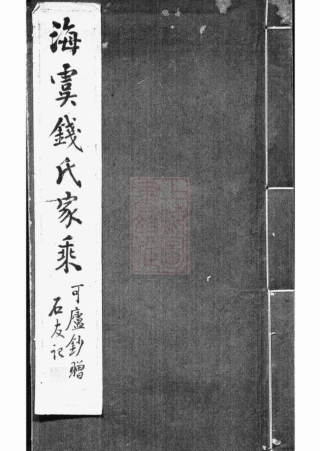 海虞錢氏家乘
可廬鈔贈
石友記